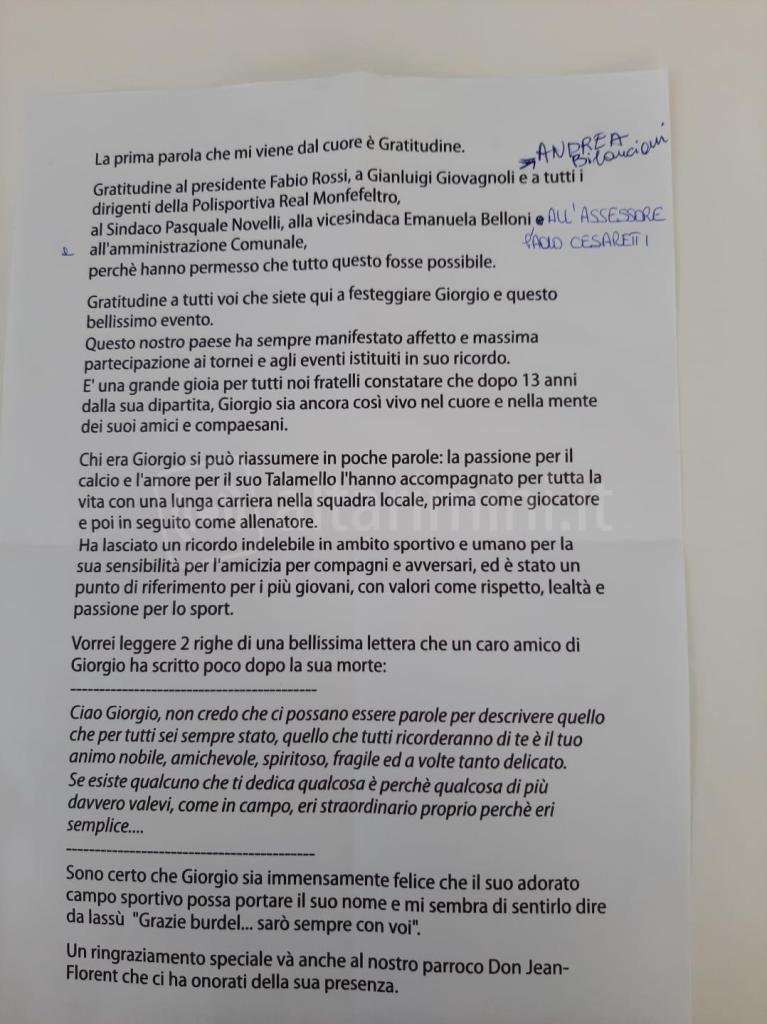 La prima parola che mi viene dal cuore è Gratitudine.
ANDREA
Bilancioni
Gratitudine al presidente Fabio Rossi, a Gianluigi Giovagnoli e a tutti i
dirigenti della Polisportiva Real Monfefeltro,
al Sindaco Pasquale Novelli, alla vicesindaca Emanuela Belloni e ALL'ASSESSORE
PAOLO CESARETTI
e all'amministrazione Comunale,
perchè hanno permesso che tutto questo fosse possibile.
Gratitudine a tutti voi che siete qui a festeggiare Giorgio e questo
bellissimo evento.
Questo nostro paese ha sempre manifestato affetto e massima
partecipazione ai tornei e agli eventi istituiti in suo ricordo.
E' una grande gioia per tutti noi fratelli constatare che dopo 13 anni
dalla sua dipartita, Giorgio sia ancora così vivo nel cuore e nella mente
dei suoi amici e compaesani.
Chi era Giorgio si può riassumere in poche parole: la passione per il
calcio e l'amore per il suo Talamello l'hanno accompagnato per tutta la
vita con una lunga carriera nella squadra locale, prima come giocatore
e poi in seguito come allenatore.
altarimini.it
Ha lasciato un ricordo indelebile in ambito sportivo e umano per la
sua sensibilità per l'amicizia per compagni e avversari, ed è stato un
punto di riferimento per i più giovani, con valori come rispetto, lealtà e
passione per lo sport.
Vorrei leggere 2 righe di una bellissima lettera che un caro amico di
Giorgio ha scritto poco dopo la sua morte:
-------------------------------------------
Ciao Giorgio, non credo che ci possano essere parole per descrivere quello
che per tutti sei sempre stato, quello che tutti ricorderanno di te è il tuo
animo nobile, amichevole, spiritoso, fragile ed a volte tanto delicato.
Se esiste qualcuno che ti dedica qualcosa è perchè qualcosa di più
davvero valevi, come in campo, eri straordinario proprio perchè eri
semplice....
-------------------------------------------
Sono certo che Giorgio sia immensamente felice che il suo adorato
campo sportivo possa portare il suo nome e mi sembra di sentirlo dire
da lassù "Grazie burdel... sarò sempre con voi".
Un ringraziamento speciale và anche al nostro parroco Don Jean-
Florent che ci ha onorati della sua presenza.